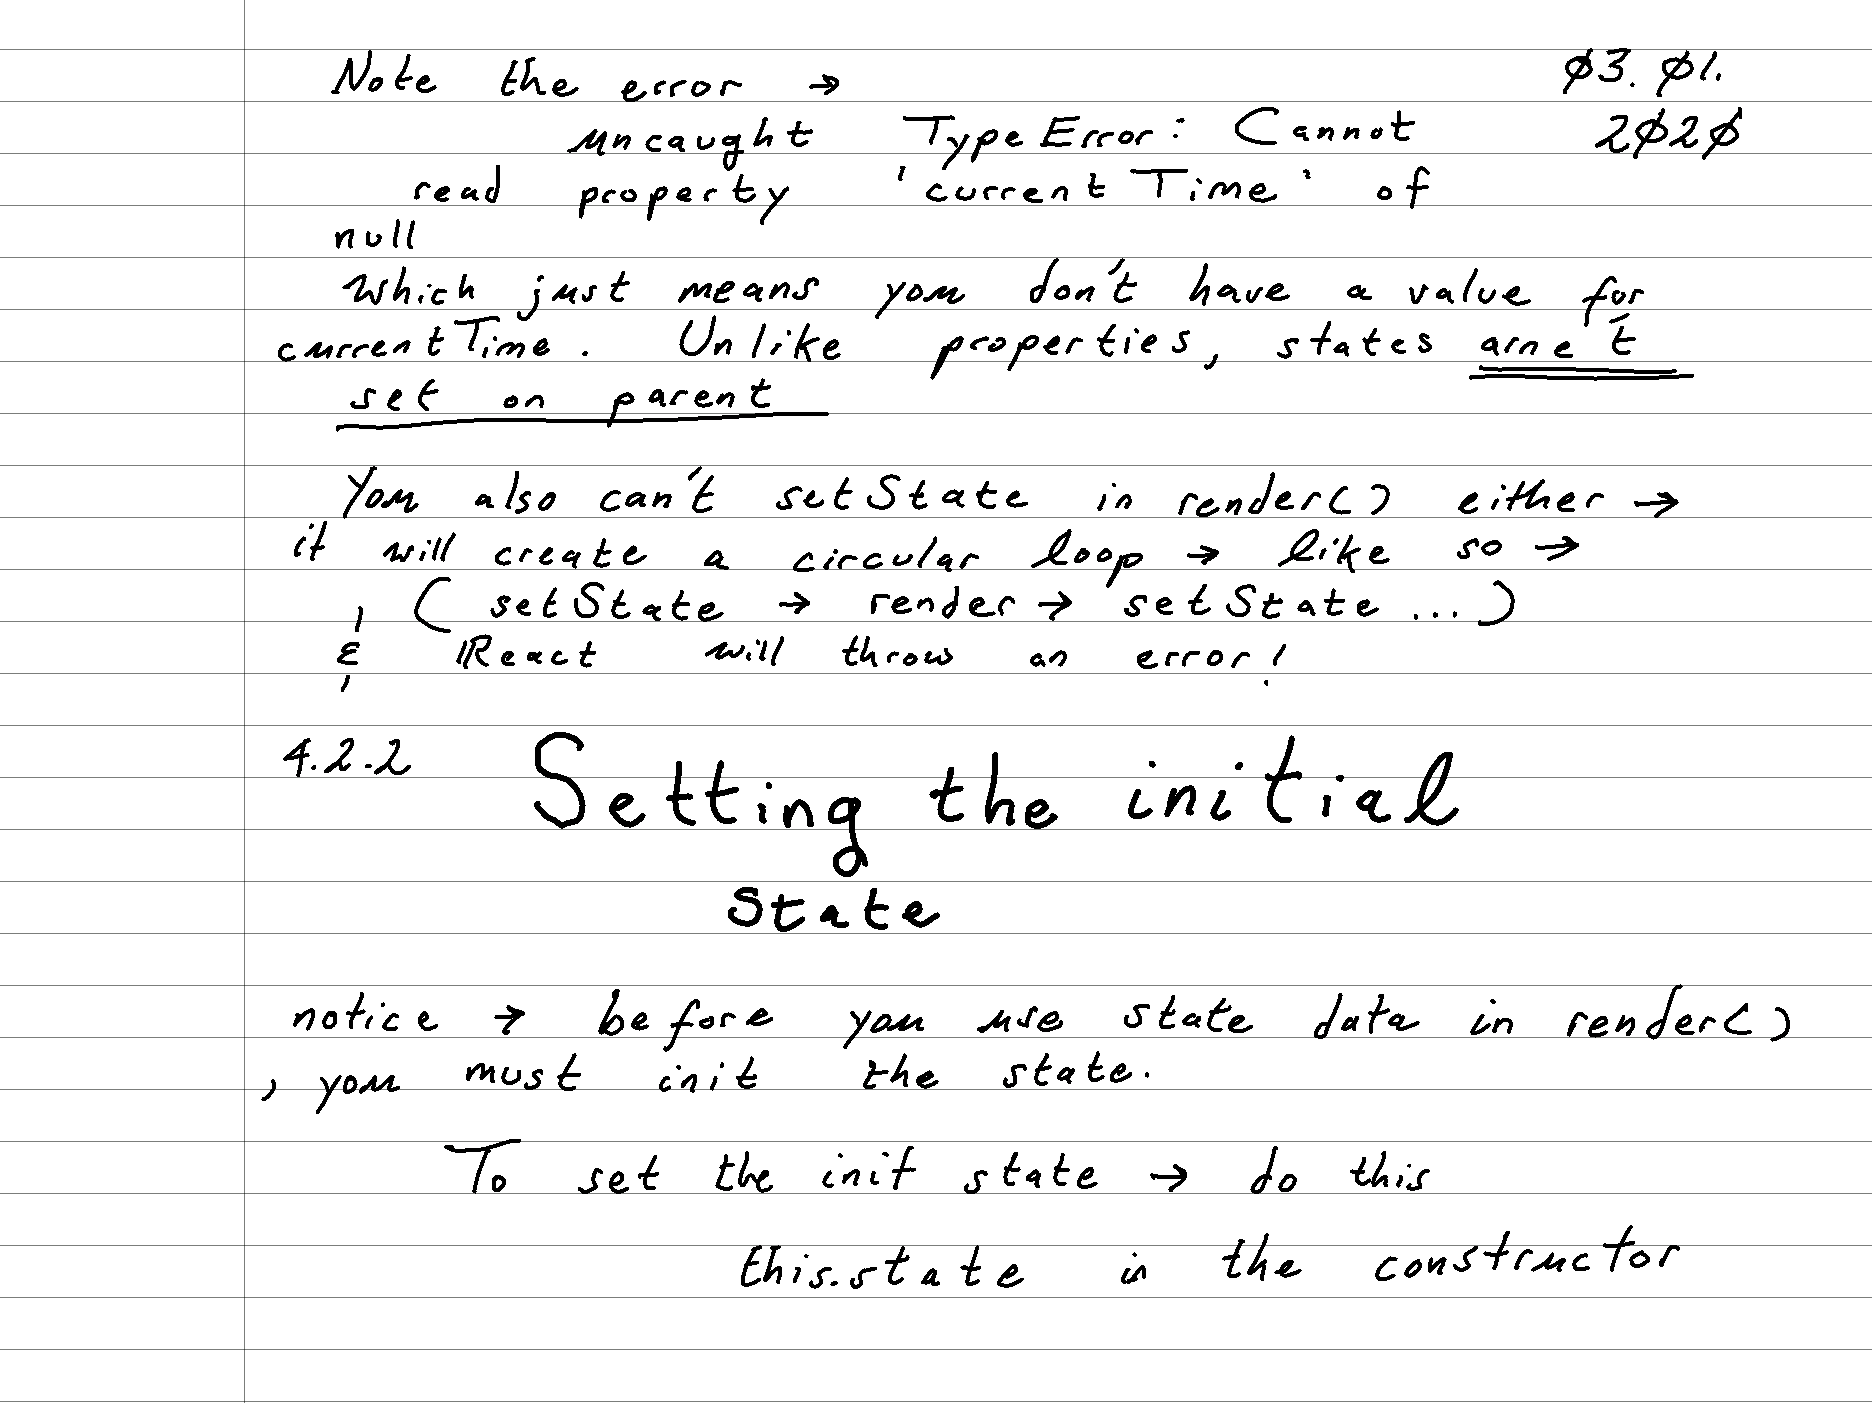 Note the error → ø3. ø1.
uncaught TypeError: Cannot 2ø2ø
read property 'currentTime' of
null
which just means you don't have a value for
currentTime. Unlike properties, states arne't
set on parent
You also can't setState in render() either →
it will create a circular loop → like so →
(setState → render → setState ...)
& React will throw an error!
4.2.2 Setting the initial
state
notice → before you use state data in render()
, you must init the state.
To set the init state → do this
this.state in the constructor